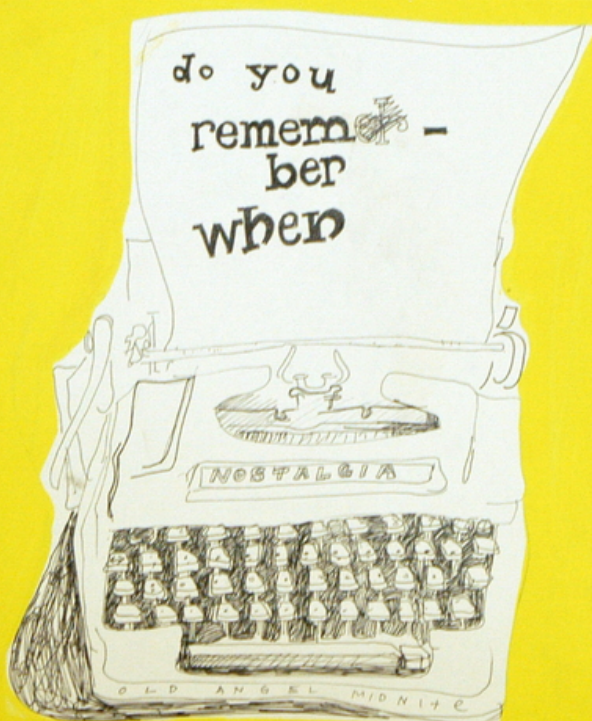 do you
remem -
ber
when
NOSTALGIA
OLD ANGEL MIDNITe